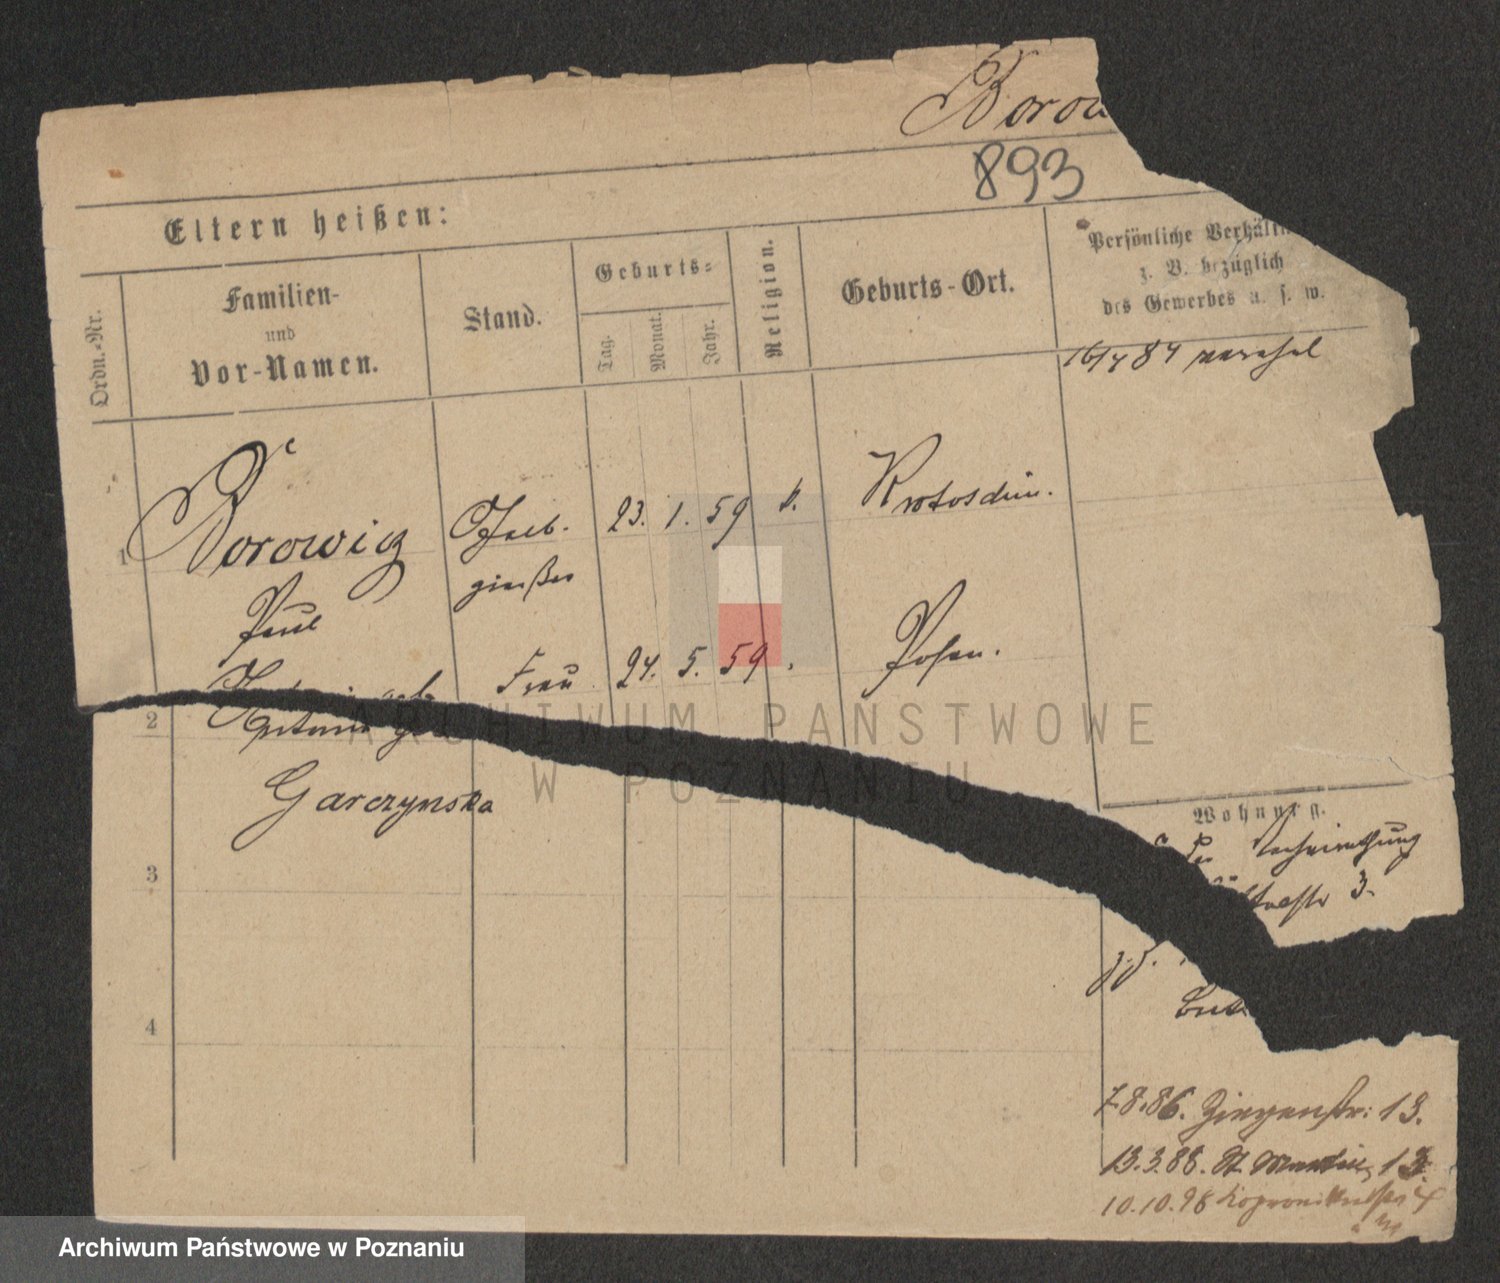 Borow
893
Eltern heißen:
Ordn.-Nr.
Familien-
und
Vor-Namen.
Stand.
Geburts-
Tag.
Monat.
Jahr.
Religion.
Geburts-Ort.
Persönliche Verhältn
z. B. bezüglich
des Gewerbes u. s. w.
16/4 84
1 Borowicz Gelb- 23. 1. 59 k. Krotoschin.
Paul gießer
2 Antonie geb. Frau 24. 5. 59 Posen.
Garczynska
3
4
Wohnung.
Verheirathung
3.
z. Z.
7.8.86. Ziegenstr: 13.
13.3.88. St Martin 13
10.10.98
ARCHIWUM PAŃSTWOWE
W POZNANIU
Archiwum Państwowe w Poznaniu